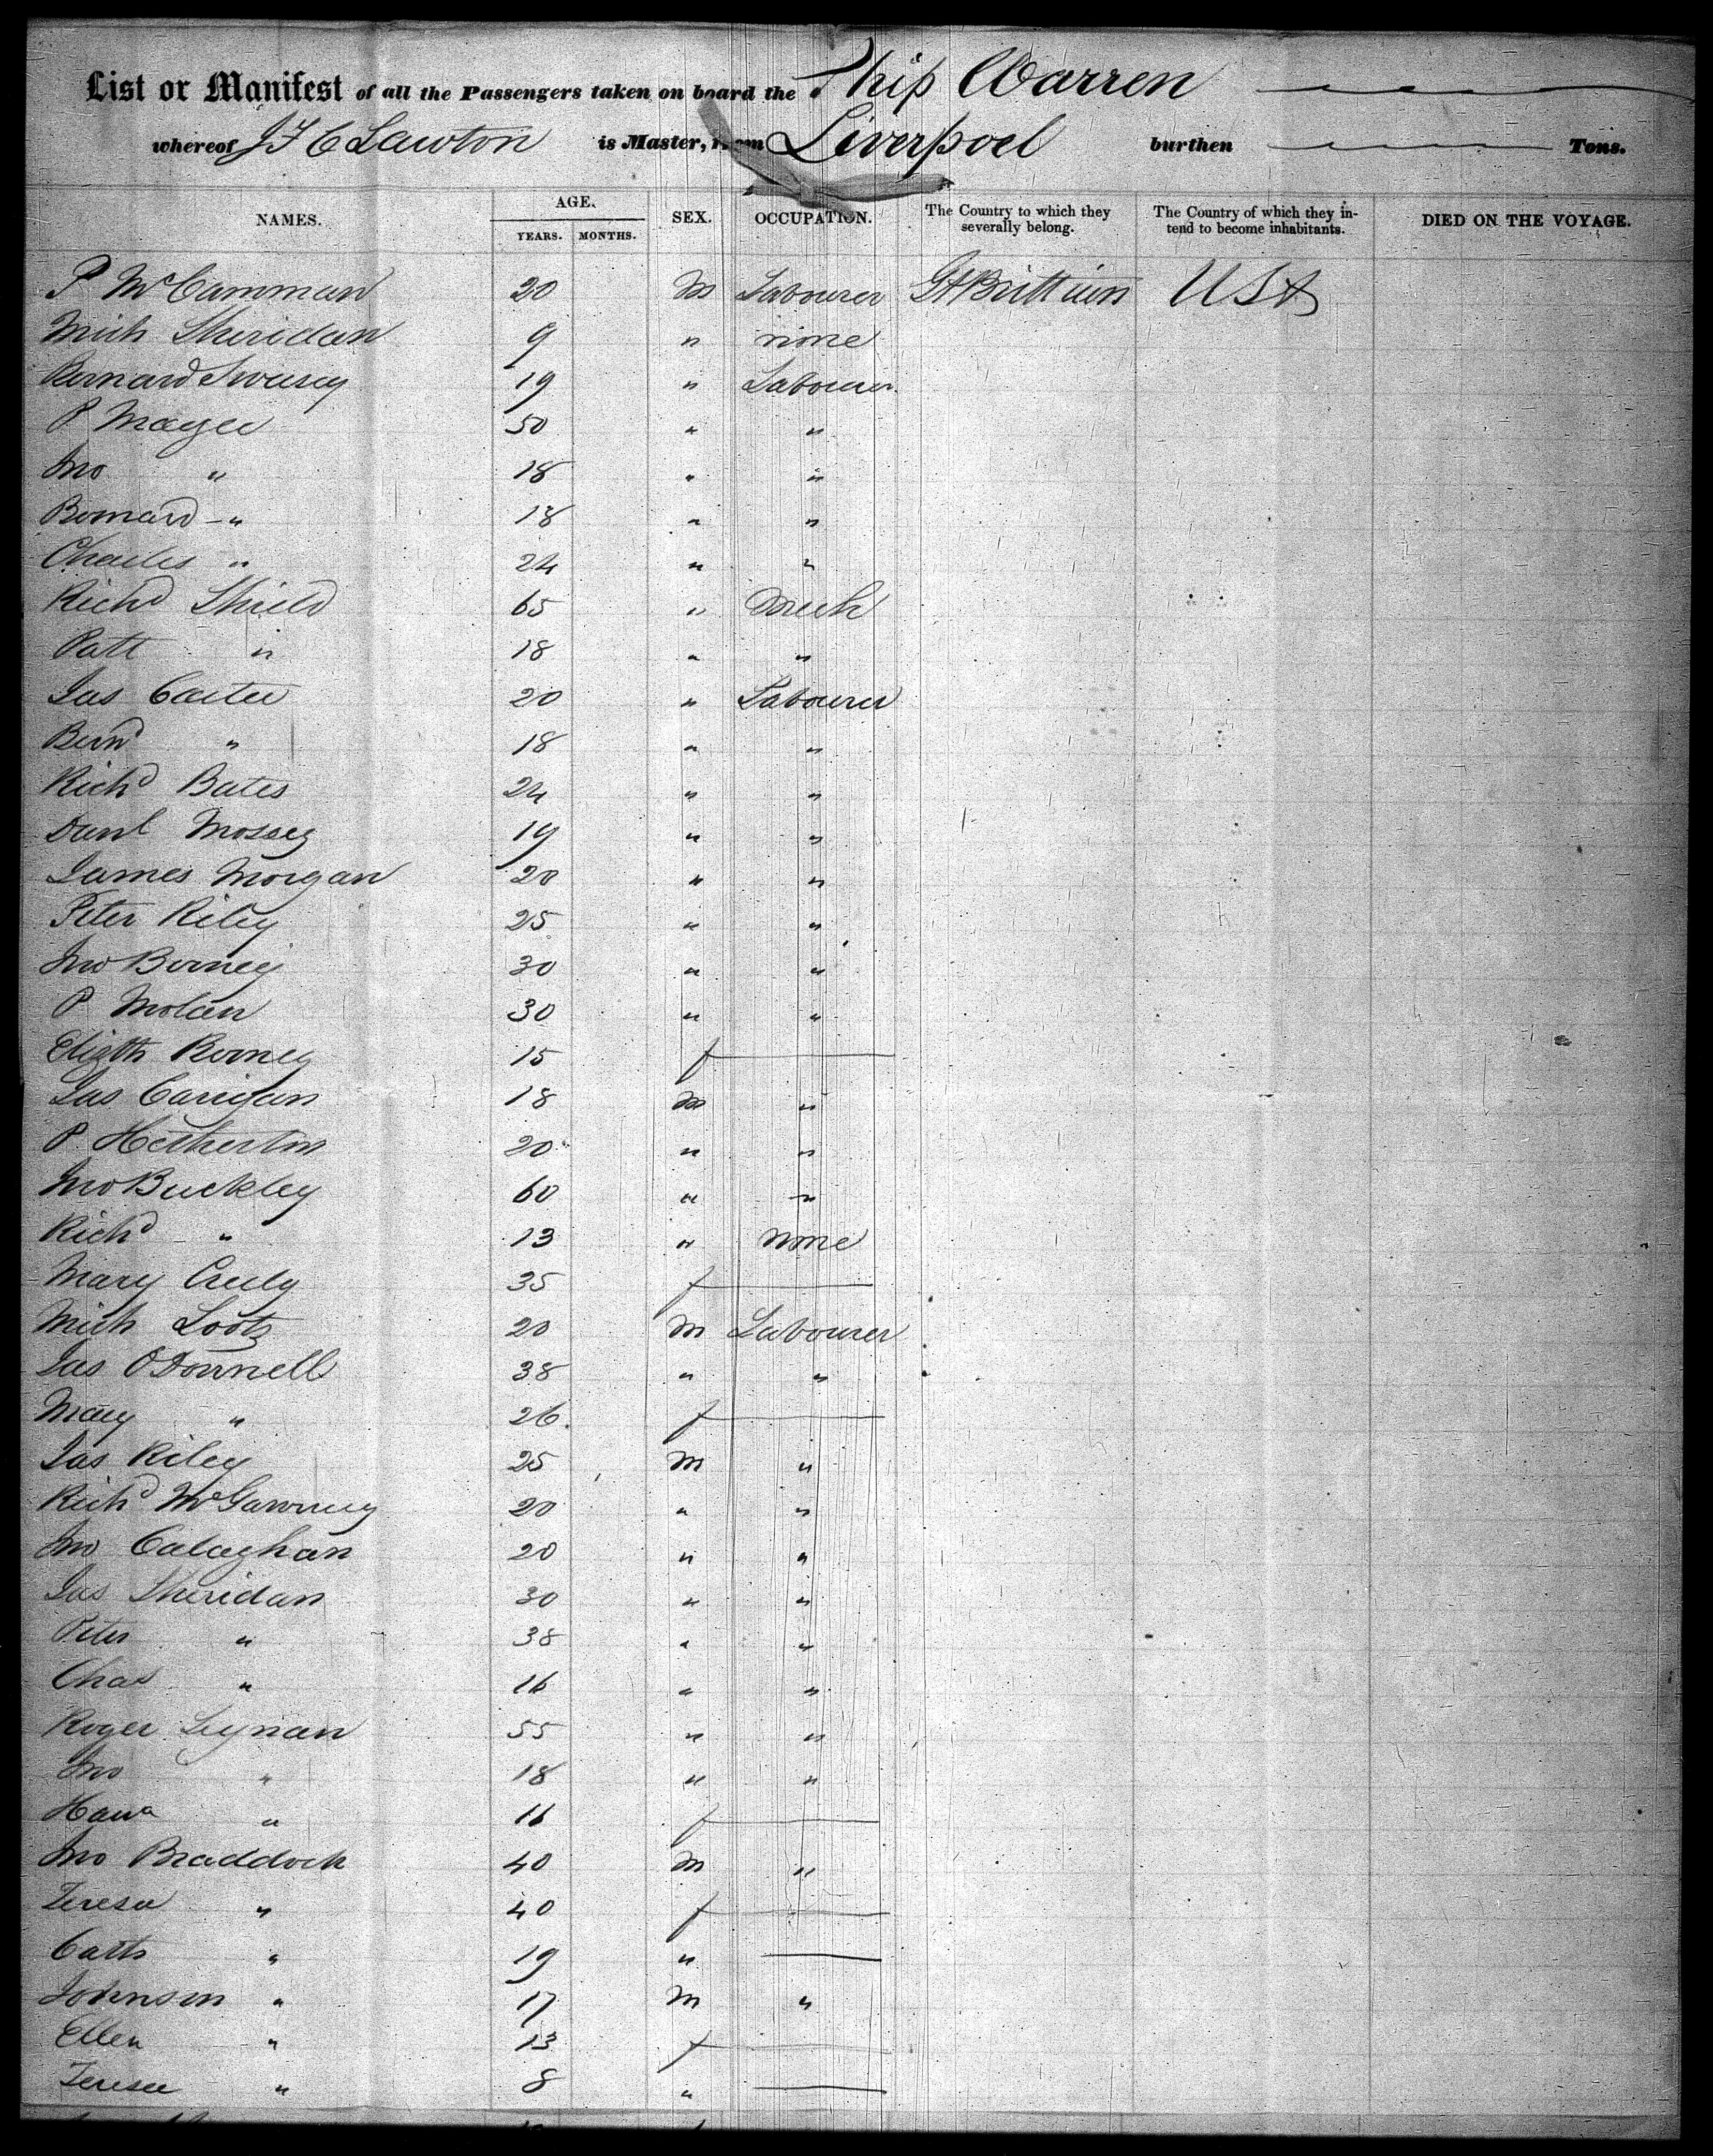 List or Manifest of all the Passengers taken on board the Ship Warren
whereof J F C Lawton is Master, from Liverpool burthen Tons.
NAMES. AGE. YEARS. MONTHS. SEX. OCCUPATION. The Country to which they severally belong. The Country of which they intend to become inhabitants. DIED ON THE VOYAGE.
P McCamman 20 M Labourer Gt Brittian USA
Mich Sheridan 9 " none
Bernard 19 " Labourer
P Magee 50 " "
Jno " 18 " "
Bernard " 18 " "
Charles " 24 " "
Richd Shield 65 " Mech
Patt " 18 " "
Jas Carter 20 " Labourer
Bernd " 18 " "
Richd Bates 24 " "
Danl Mossey 19 " "
James Morgan 20 " "
Peter Riley 25 " "
Jno Berney 30 " "
P Molan 30 " "
Elizth Rooney 15 f
Jas Carrigan 18 M "
P Hetherton 20 " "
Jno Buckley 60 " "
Richd " 13 " none
Mary 35 f
Mich 20 M Labourer
Jas O'Donnell 38 " "
Mary " 26 f
Jas Riley 25 M "
Richd 20 " "
Jno Calaghan 20 " "
Jas Sheridan 30 " "
Peter " 38 " "
Chas " 16 " "
Roger Leynan 55 " "
Jno " 18 " "
Hana " 16 f
Jno Braddock 40 M "
Teresa " 40 f
Cath " 19 "
Johnson " 17 M "
Ellen " 13 f
Teresa " 8 "